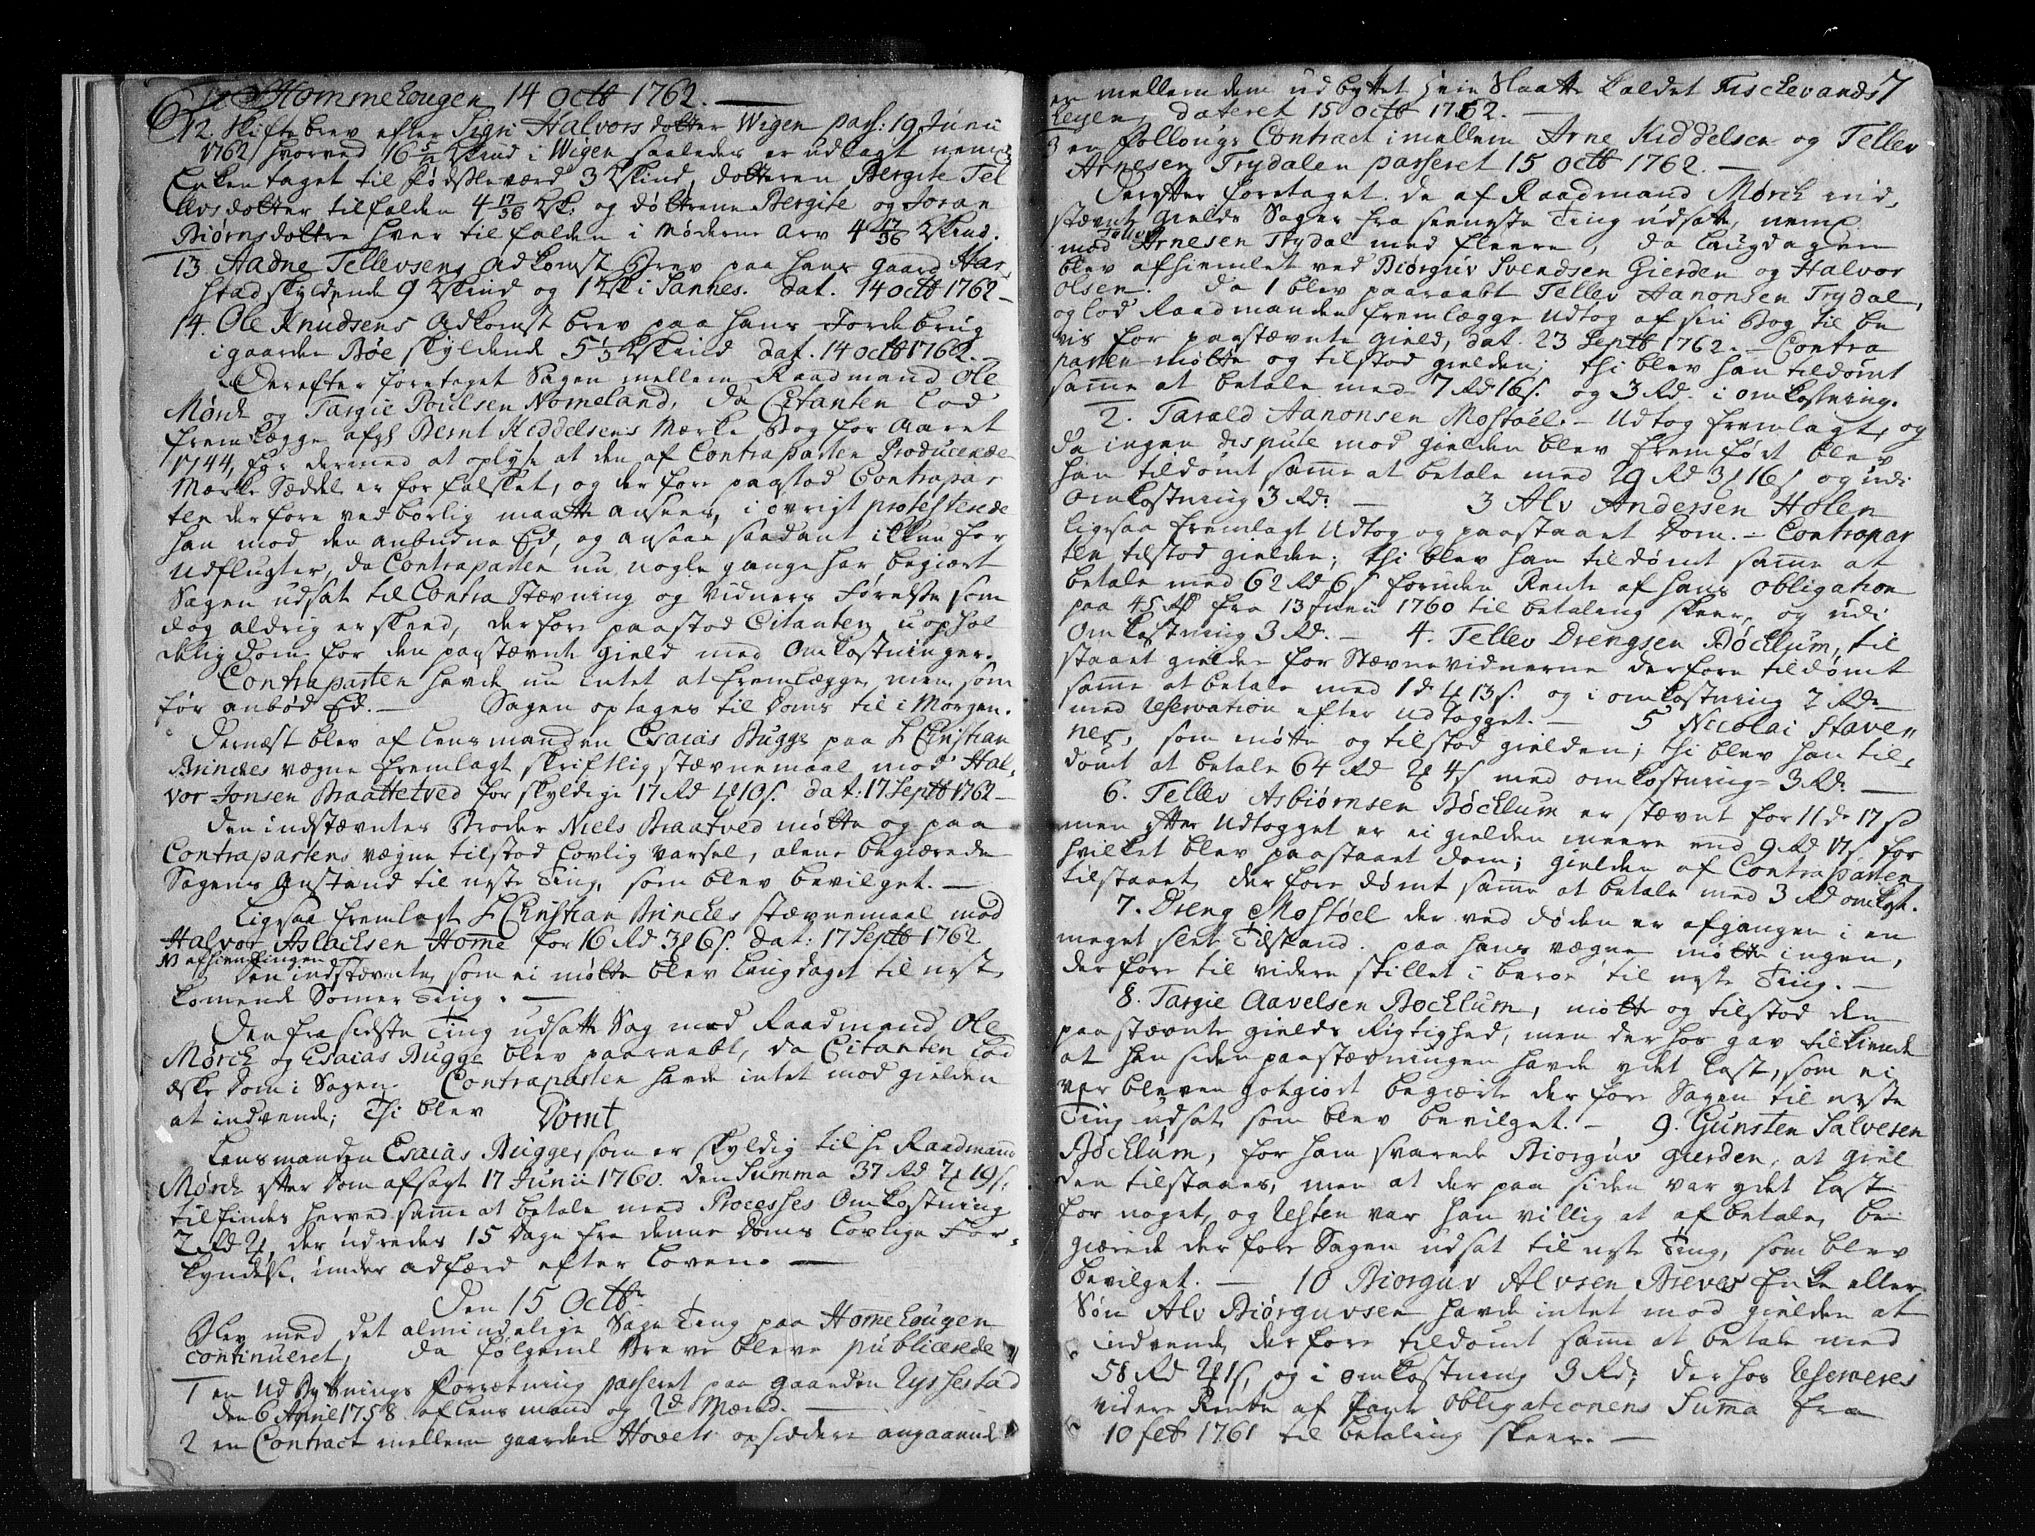 6
Hommelougen 14 Octb 1762.
12. Skiftebrev efter Sigri Halvorsdotter Wigen pass: 19 Junii
1762, hvorved 16 5/12 Skind i Wigen saaledes er udlagt neml
Enken taget til fødsleværd 3 Skind, dotteren Bergite Tel
levsdotter tilfalden 4 17/36 Sk: og døttrene Bergite og Joran
Biørnsdottre hver tilfalden i Møderne Arv 4 17/36 Skind.
13 Aadne Tellevsens Adkomst Brev paa hans gaard Har,
stad skyldende 9 Skind og 1 Sk i Sannes. dat. 14 octb 1762 -
14. Ole Knudsens Adkomst brev paa hans Fordebrug
i gaarden Bøe skyldende 5 1/3 Skind dat. 14 octb 1762.
Derefter foretaget Sagen mellem Raadmand Ole
Mørch og Targie Poulsen Nomeland, da Citanten lod
fremlægge afg Bernt Keddelsens Mærke Bog for Aaret
1744, for dermed at oplyse at den af Contraparten Producerede
Mærke Sæddel er forfalsket, og derfore paastod Contrapar
ten derfore ved børlig maatte ansees, i øvrigt protesterede
han mod den anbudne Ed, og ansaae saadant ikkun for
Udflugter, da Contraparten nu nogle gange har begiært
Sagen udsat til Contra Stævning og Vidners Førelse som
dog aldrig er skeed, derfore paastod Citanten uophol
delig dom for den paastævnte gield med Omkostninger.
Contraparten havde nu intet at fremlægge, men som
før anbød Ed. - Sagen optages til Doms til i Morgen.
Dernæst blev af lensmanden Esaias Bugge paa Hr Christian
Brinches vægne fremlagt skriftlig stævnemaal mod Hal,
vor Jonsen Braattetved for skyldige 17 Rd 1 10 s. dat: 17 Septb 1762 -
Den indstævntes Broder Niels Braatved mødte og paa
Contrapartens vægne tilstod lovlig varsel, alene begiærede
Sagens Anstand til neste Ting, som blev bevilget. -
Ligesaa fremlagt Hr Christian Brinches stævnemaal mod
Halvor Aslachsen Home for 16 Rd 3 6 s. dat: 17 Septb 1762
N afhiemlingen
Den indstævnte, som ei mødte blev laugdaget til nest
komende Somer Ting. -
Den fra sidste Ting udsatte Sag mod Raadmand Ole
Mørch og Esaias Bugge blev paaraabt, da Citanten lod
æske Dom i Sagen. Contraparten havde intet mod gielden
at indvende; Thi blev Dømt
Lensmanden Esaias Bugge, som er skyldig til hr Raadmand
Mørch efter Dom afsagt 17 Junii 1760. den Summa 37 Rd 2 19 s.
tilfindes herved samme at betale med Processes Omkostning
2 Rd 2, der udredes 15 Dage fra denne Doms Lovlige For,
kyndelse, under adfærd efter Loven. -
Den 15 Octbr
Blev med det almindelige Sage Ting paa Homelougen
continueret, da følgende Breve bleve publicerede
1 en Udbytnings Forretning passeret paa gaarden Ryssestad
den 6 April 1758 af lensmand og 2de Mænd. -
2 en Contract mellem gaarden Hovets opsiddere angaaende
7
en mellem dem udbyttet Heie Slaatte kaldet Fischevands
leyen, dateret 15 Octb 1762. -
3 en follougs Contract imellem Arne Kiddelsen og Tellev
Arnesen Trydalen passeret 15 Octb 1762. -
Derefter foretaget de af Raadmand Mørch ind,
stævnte gields Sager fra seeneste Ting udsatte, neml
mod Tellev Arnesen Trydal med fleere, da laugdagen
blev afhiemlet ved Biørguv Svendsen Gierden og Halvor
olsen. da 1 blev paaraabt Tellev Aanonsen Trydal,
og lod Raadmanden fremlægge udtog af sin Bog til be
vis for paastævnte gield, dat. 23 Septb 1762. - Contra
parten mødte og tilstod gielden; thi blev han tildømt
samme at betale med 7 Rd 16 s. og 3 Rd. i omkostning.
2. Tarald Aanonsen Mostøel. - Udtog fremlagt, og
da ingen dispute mod gielden blev fremført blev
han tildømt samme at betale med 29 Rd 3 16 s og udi
Omkostning 3 Rd. - 3 Alv Andersen Holen
ligesaa fremlagt Udtog og paastaaet Dom. - Contrapar
ten tilstod gielden; thi blev han tildømt samme at
betale med 62 Rd 6 s foruden Rente af hans obligation
paa 45 Rd fra 13 Junii 1760 til betaling skeer, og udi
Omkostning 3 Rd. - 4. Tellev Drengsen Bøchlum, til
staaet gielden for Stævnevidnerne derfore tildømt
samme at betale med 1 d 4 13 s. og i omkostning 2 Rd
med Reservation efter Udtogget. - 5 Nicolai Stave,,
nes, som mødte og tilstod gielden; thi blev han til,
dømt at betale 64 Rd 2 4 s med omkostning 3 Rd. -
6. Tellev Asbiørnsen Bøchlum er stævnt for 11 d 17 s
men efter Udtogget er ei gielden meere end 9 Rd 17 s for
hvilket blev paastaaet dom; gielden af Contraparten
tilstaaet, derfore dømt samme at betale med 3 Rd omkost.
7. Dreng Mostøel der ved døden er afgangen i en
meget slet Tilstand. paa hans vægne mødte ingen,
derfore til videre skillet i beroe til neste Ting. -
8. Targie Aavelsen Bochlum, mødte og tilstod den
paastævnte gields Rigtighed, men derhos gav tilkiende
at han siden paastævningen havde ydet Last, som ei
var bleven godgiort begiærte derfore Sagen til neste
Ting udsat som blev bevilget. - 9. Gunsten Salvesen
Bøchlum, for ham svarede Biørguv Gierden, at giel
den tilstaaes, men at der paa siden var ydet Last
for noget, og Resten var han villig at afbetale, be
giærede derfore Sagen udsat til neste Ting, som blev
bevilget. - 10 Biørguv Alvsen Breves Enke eller
Søn Alv Biørguvsen havde intet mod gielden at
indvende, derfore tildømt samme at betale med
58 Rd 2 1 s, og i omkostning 3 Rd; derhos Reserveres
videre Rente af Pante Obligationens Suma fra
10 feb 1761 til betaling skeer. -